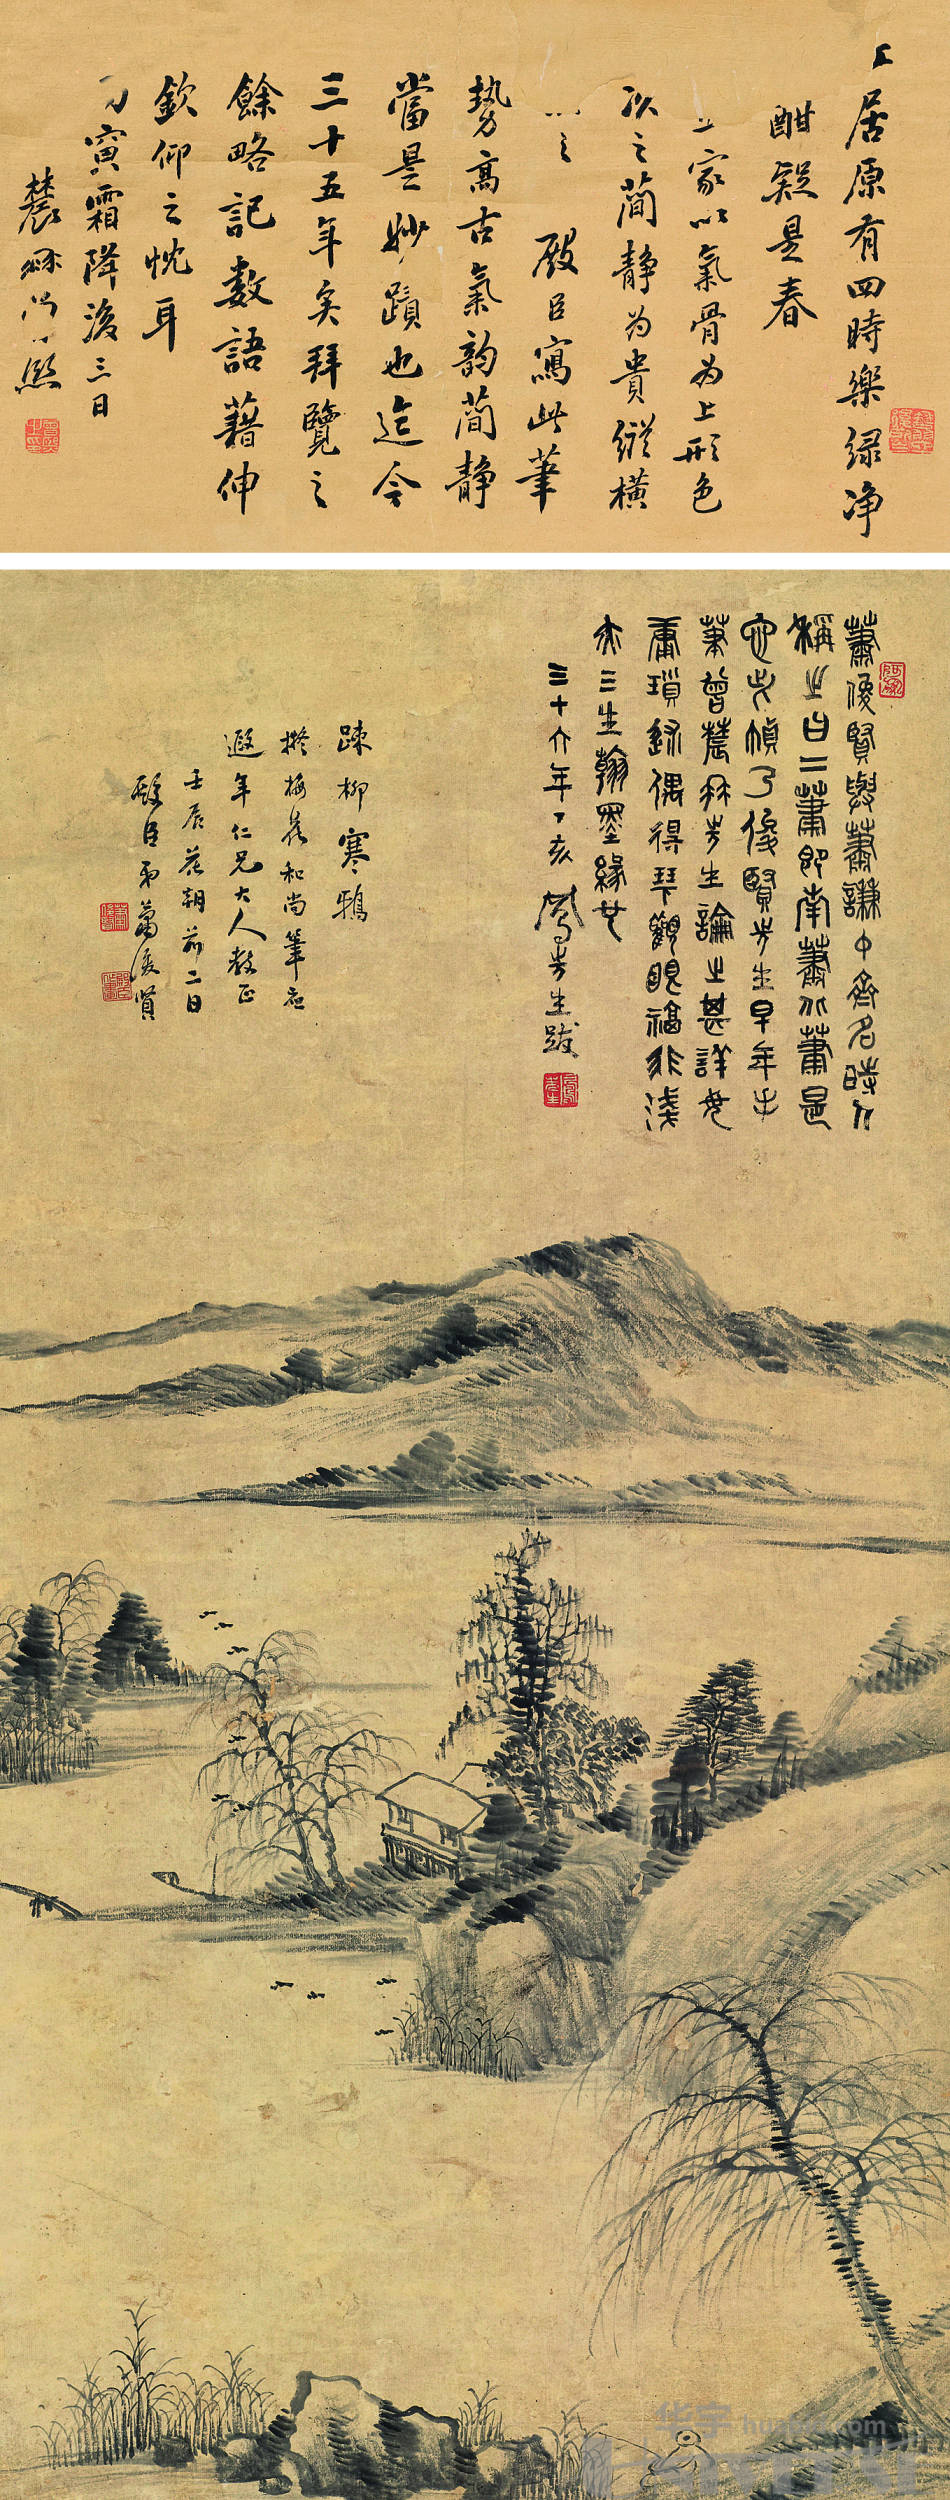 居原有四時樂綠净
酣疑是春
家以氣骨为上形色
次之簡静为貴縱橫
之 殿臣寫此筆
勢高古氣韵簡静
當是妙蹟也迄今
三十五年矣拜覽之
餘略記數語藉伸
欽仰之忱耳
寅霜降後三日
農髯 熙
蕭俊賢與蕭謙中齊名時人
稱之曰二蕭即南蕭北蕭是
也此幀乃俊賢先生早年手
筆曾農髯先生論之甚詳毋
庸瑣錄偶得琴觀眼福非淺
亦三生翰墨緣也
三十六年丁亥 先生跋
踈柳寒鴉
撫梅花和尚筆應
遐年仁兄大人教正
壬辰花朝前二日
殿臣弟蕭俊贤
华宇 huabid.com